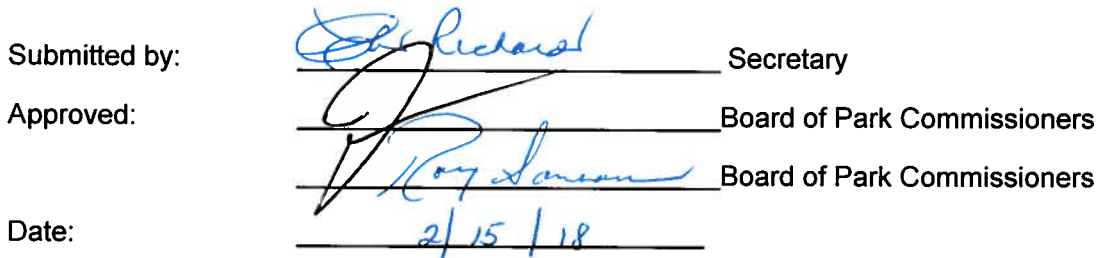 Submitted by: Richard Secretary
Approved: Board of Park Commissioners
Roy Board of Park Commissioners
Date: 2/15/18